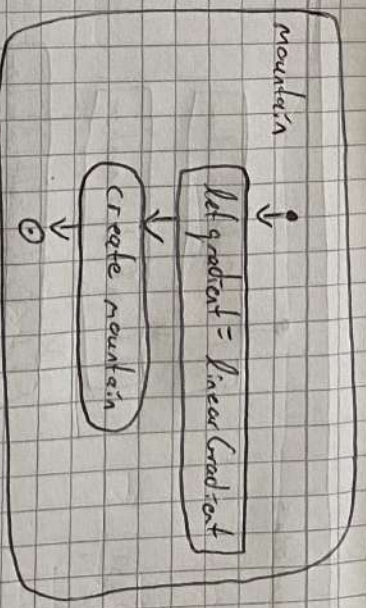 Mountain
let gradient = linearGradient
create mountain